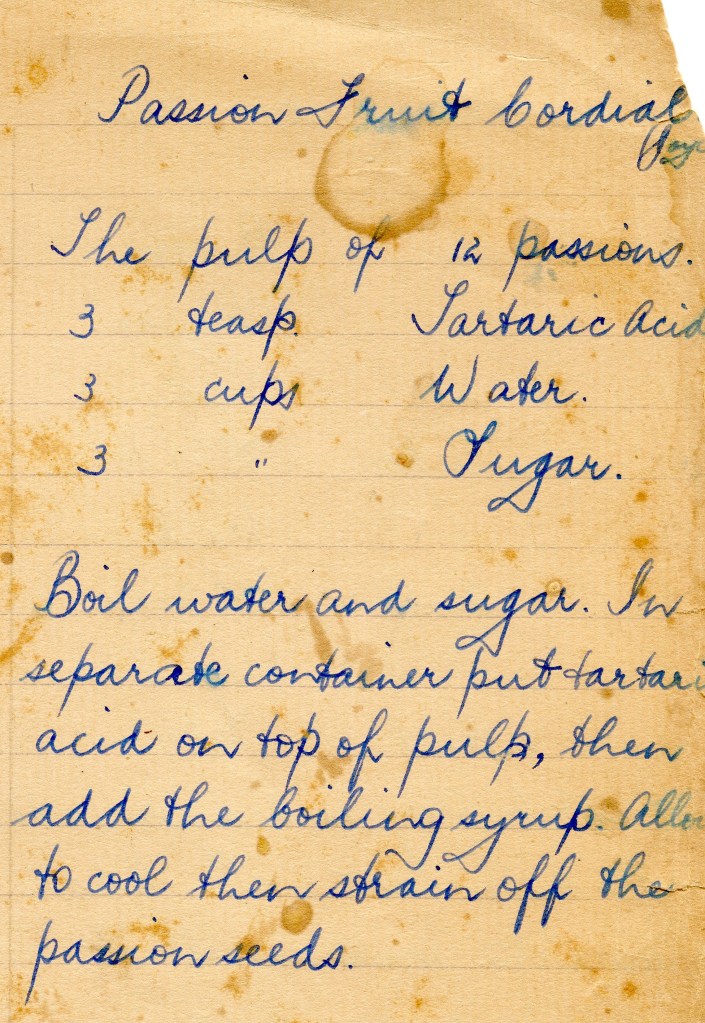 Passion Fruit Cordial
The pulp of 12 passions.
3 teasp. Tartaric Acid
3 cups Water.
3 " Sugar.
Boil water and sugar. In
separate container put tartari
acid on top of pulp, then
add the boiling syrup. Allo
to cool then strain off the
passion seeds.